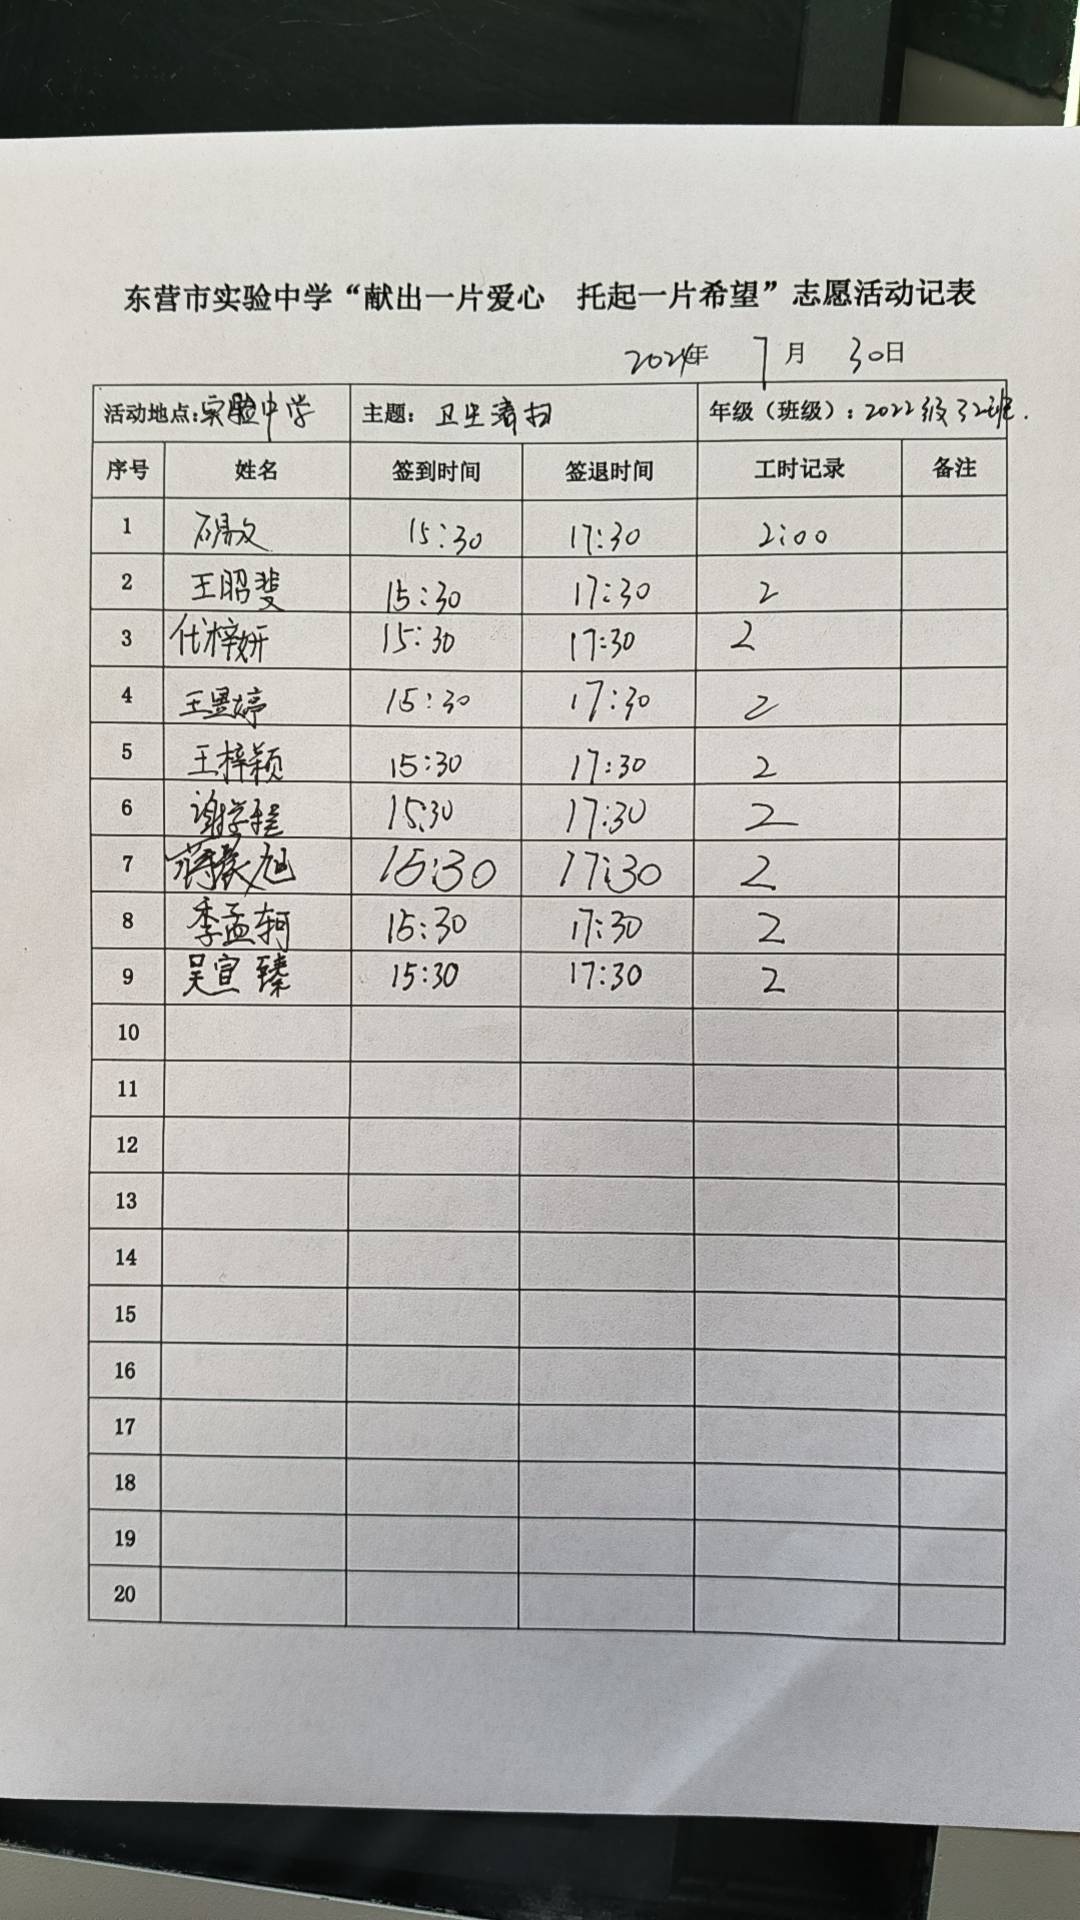 东营市实验中学“献出一片爱心　托起一片希望”志愿活动记表
2024年 7月 30日
活动地点:实验中学 主题：卫生清扫 年级（班级）：2022级32班.
序号 姓名 签到时间 签退时间 工时记录 备注
1 15:30 17:30 2:00
2 王昭斐 15:30 17:30 2
3 代梓妍 15:30 17:30 2
4 王昱婷 15:30 17:30 2
5 王梓颖 15:30 17:30 2
6 谢学程 15:30 17:30 2
7 15:30 17:30 2
8 季孟轲 15:30 17:30 2
9 吴宣臻 15:30 17:30 2
10
11
12
13
14
15
16
17
18
19
20